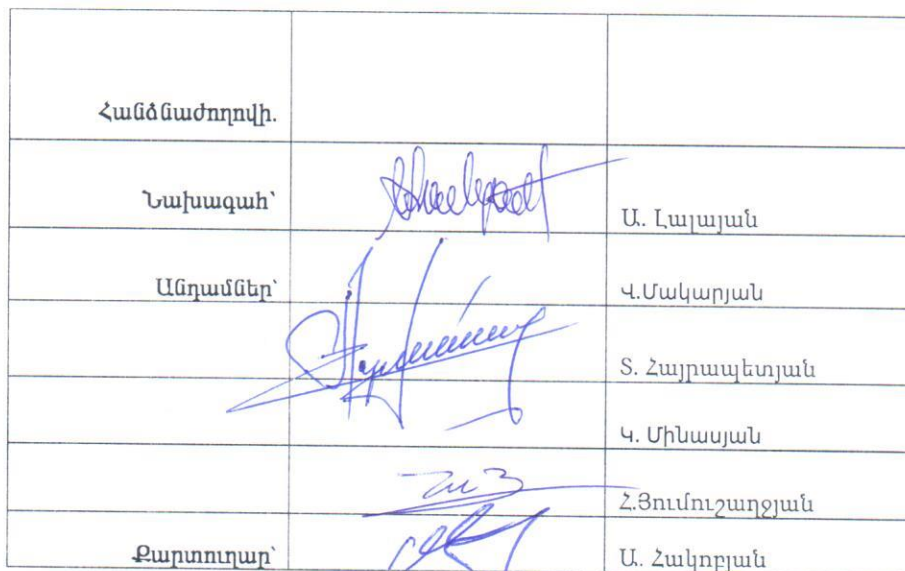 Հանձնաժողովի.
Նախագահ՝
Ա. Լալայան
Անդամներ՝
Վ.Մակարյան
Տ. Հայրապետյան
Կ. Մինասյան
Հ.Յումուշաղջյան
Քարտուղար՝
Ա. Հակոբյան